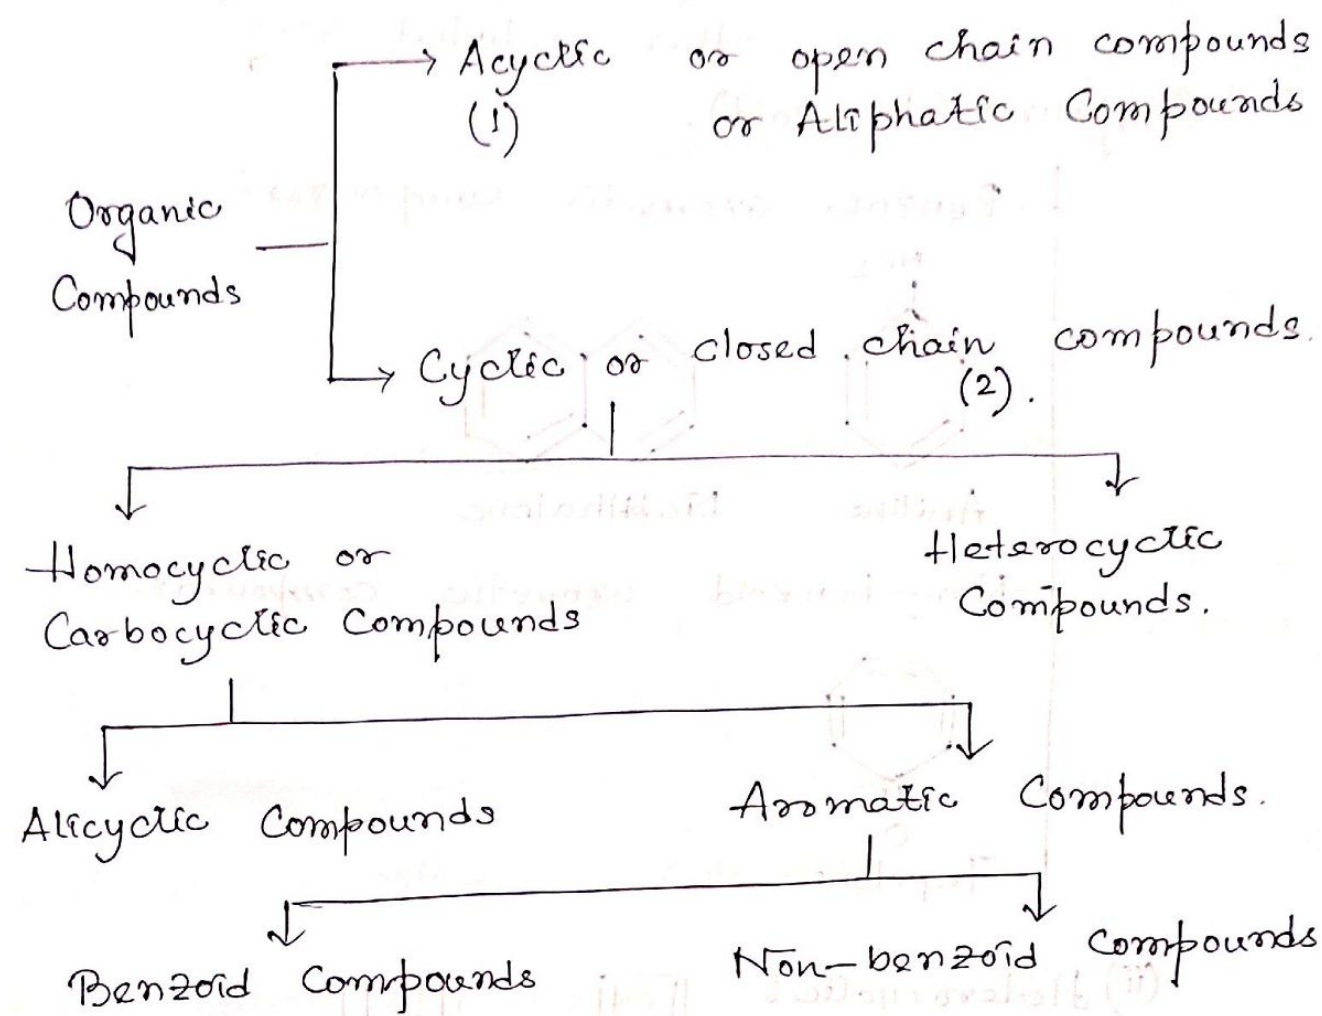 Acyclic or open chain compounds
(1) or Aliphatic Compounds
Organic
Compounds
Cyclic or closed chain compounds.
(2).
Homocyclic or
Carbocyclic Compounds
Heterocyclic
Compounds.
Alicyclic Compounds
Aromatic Compounds.
Benzoid Compounds
Non-benzoid Compounds